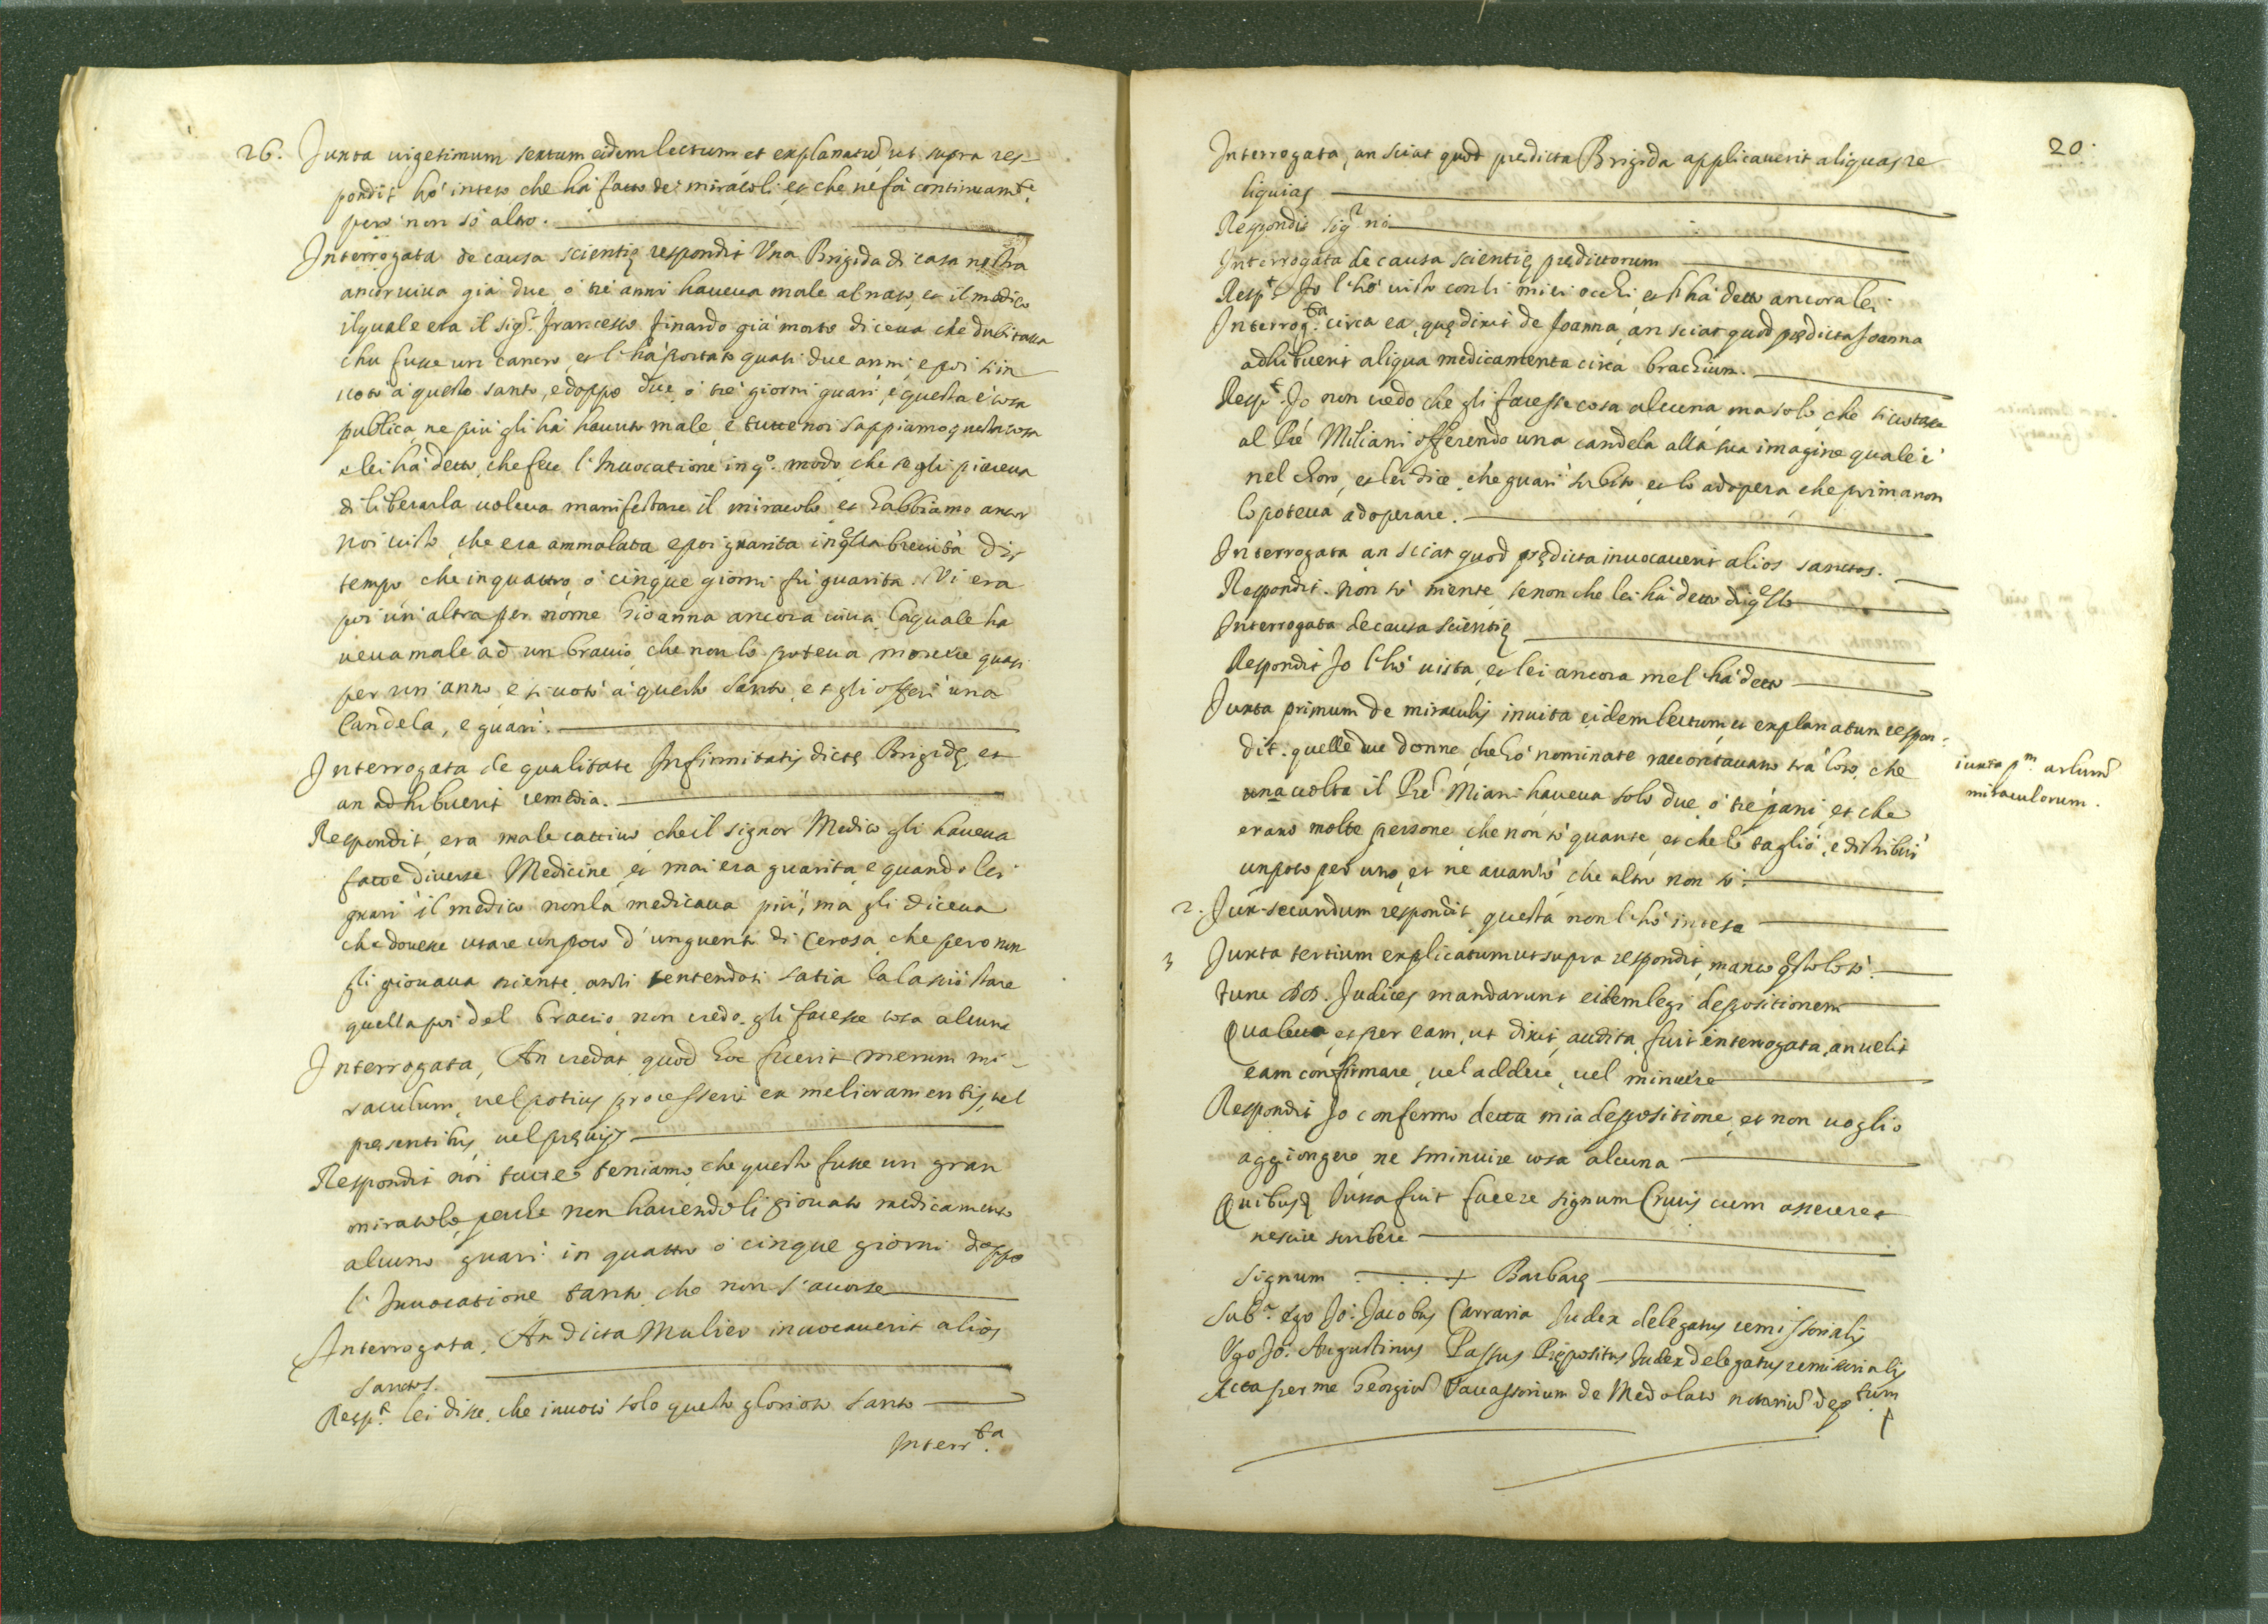 26. Juxta uigesimum sextum eidem lectum et explanatũ ut supra res-
pondit hò inteso che hà fatto de' miracoli, et che ne fà continuam.te
però non sò altro.
Interrogata de causa scientię respondit Una Brigida di casa nostra
ancor uiua già due, ò trè anni haueua male al naso, et il medico
il quale era il sig.r Francesco Finardo già morto diceua che dubitaua
che fusse un cancro, et l'hà portato quasi due anni, e poi si in
uotò à questo santo, e doppo due, ò trè giorni guarì, e questa è cosa
publica, ne più gli hà hauuto male, e tutte noi sappiamo questa cosa
e lei hà detto, che fece l'Inuocatione in q.o modo, che se gli piaceua
di liberarla uoleua manifestare il miracolo, et habbiamo ancor
noi uisto, che era ammalata, e poi guarita in qsta breuità di
tempo che in quattro, ò cinque giorni fù guarita. Vi era
poi un'altra per nome Gioanna ancora uiua, la quale ha
ueua male ad un braccio, che non lo poteua mouere quasi
per un'anno, e si uotò à questo santo, et gli offerì una
Candela, e guarì.
Interrogata de qualitate Infirmitatis dictę Brigidę, et
an adhibuerit remedia.
Respondit, era male cattiuo, che il signor Medico gli haueua
fatte diuerse Medicine, et mai era guarita, e quando lei
guarì il medico non la medicaua più, ma gli diceua
che douesse usare un poco d'unguento di Cerosa, che però non
gli giouaua niente, anzi sentendosi satia la lasciò stare
quella poi del braccio, non credo gli facesse cosa alcuna
Interrogata, An credat quod hoc fuerit merum mi-
raculum, uel potius processerit ex melioramentis, uel
presentibus, uel pręuijs
Respondit noi tutte teniamo, che questo fusse un gran
miracolo, perche non hauendoli giouato medicamento
alcuno guarì in quattro ò cinque giorni doppo
l'Inuocatione tanto, che non s'accorse
Interrogata, An dicta Mulier inuocauerit alios
sanctos.
Resp.t lei disse, che inuocò solo questo glorioso santo
Interr.ta
20.
Interrogata, an sciat quod predicta Brigida applicauerit aliquas re
liquias
Respondit sig.r nò
Interrogata de causa scientię prędictorum
Resp.t Io l'hò uisto con li miei occhi et l'hà detto ancora lei
Interrog.ta circa ea, quę dixit de Joanna, an sciat quod prędicta Joanna
adhibuerit aliqua medicamenta circa brachium.
Resp.t Io non credo che gli facesse cosa alcuna, ma solo, che si uotasse
al Prè Miliani offerendo una candela alla sua imagine quale è
nel choro, et lei dice, che guarì subito, et lo adopera che prima non
lo poteua adoperare.
Interrogata an sciat quod prędicta inuocauerit alios sanctos.
Respondit. non sò niente, se non che lei hà detto di qsto
Interrogata de causa scientię
Respondit Io l'hò uista, et lei ancora mel'hà detto
Juxta primum de miraculis in uita eidem lectum, et explanatum respon-
dit. quelle due donne, che hò nominate raccontauano trà loro, che
una uolta il Prè Miani haueua solo due, ò trè pani, et che
erano molte persone, che non sò quante, et che lo tagliò, e distribuì
un poco per uno, et ne auanzò, che altro non sò.
iuxta p.m arlum
miraculorum.
2. Jux. secundum respondit questa non l'hò intesa
3 Juxta tertium explicatum ut supra respondit, manco qsto lo sò.
Tunc DD. Judices mandarunt eidem legi depositionem
Qua lecta, et per eam, ut dixit, audita, fuit interrogata, an uelit
eam confirmare, uel addere, uel minuere
Respondit Io confermo detta mia depositione, et non uoglio
aggiongere, ne sminuire cosa alcuna
Quibusq iussa fuit facere signum Crucis cum asseueret
nescire scribere
Signum + Barbarę
Sub.a Ego Jo: Jacobus Carraria Judex delegatus remissorialis
Ego Jo: Augustinus Passus Prępositus Judex delegatus remissorialis
Acta per me Georgiũ Vauassorium de Medolaco notariũ dep.tum